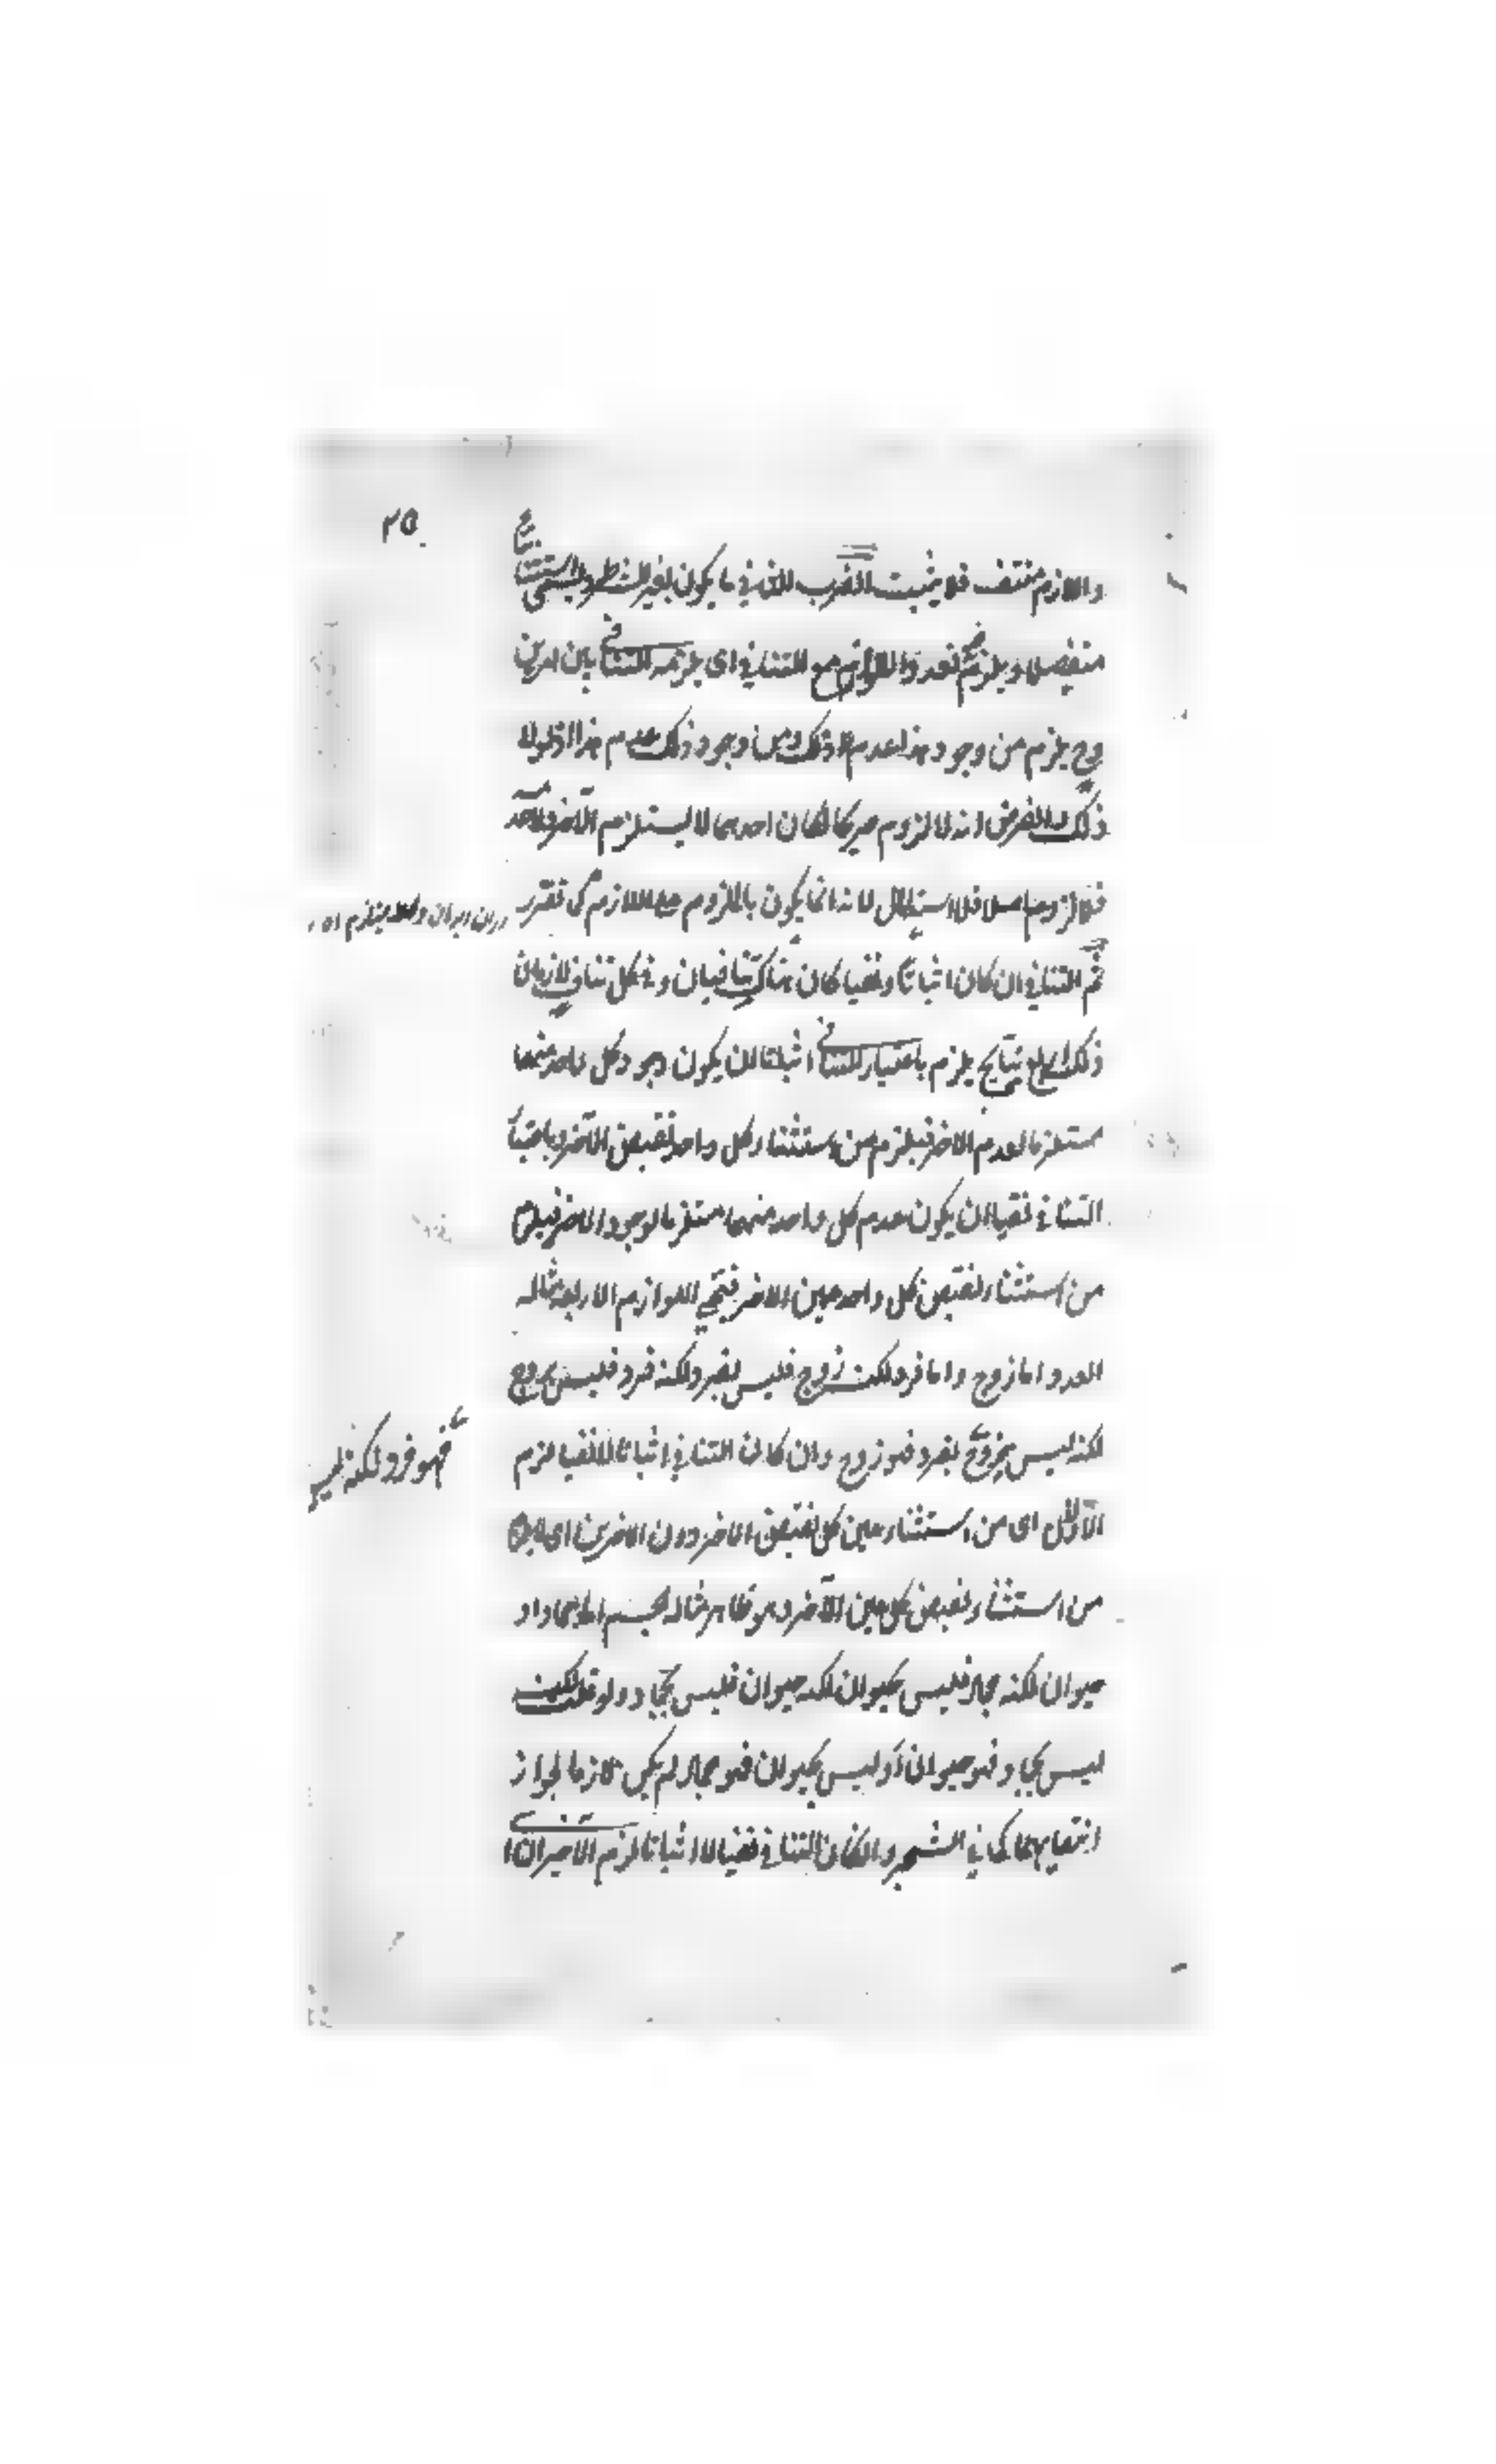 ٢٥
واللازم منتف فلا يثبت الضرب الثاني ما يكون بغير الشرط ويسمى استثنائيا
منفصلا ويلزمه تعدد اللازم مع التنافي اى يلزمه التنافي بين امرين
وح يلزم من وجود هذا عدم ذلك ومن وجود ذلك عدم هذا اذ لولا
ذلك والفرض انه لا لزوم صريحا لكان احدهما لا يستلزم الآخر ولا عدمه
فلا لزوم اصلا فلا استدلال لانه انما يكون بالملزوم على اللازم كما تقرر
ثم التنافي ان كان اثباتا ونفيا كان هناك تنافيان وفي كل تناف لازمان
ذلك اربع نتايج يلزم باعتبار التنافي اثباتا ان يكون وجود كل واحد منهما
مستلزما لعدم الاخر فيلزم من استثناء كل واحد نقيض الآخر وباعتبار
التنافي نفيا ان يكون عدم كل واحد منهما مستلزما لوجود الاخر فيلزم
من استثناء نقيض كل واحد عين الاخر فيجيء اللوازم الاربعة مثاله
العدد اما زوج واما فرد لكنه زوج فليس بفرد لكنه فرد فليس بزوج
لكنه ليس بزوج بفرد فهو زوج وان كان التنافي اثباتا لا نفيا لزم
فهو فرد لكنه ليس
الاولان اى من استثناء عين كل نقيض الاخر دون الاخرين اى
من استثناء نقيض كل عين الآخر وهو ظاهر مثاله الجسم اما جماد او
حيوان لكنه جماد فليس بحيوان لكنه حيوان فليس بجماد ولو قلت لكنه
ليس بجماد فهو حيوان او ليس بحيوان فهو جماد لم يكن لازما لجواز
انتفائهما كما في الشجر وان كان التنافي نفيا لا اثباتا لزم الاخيران